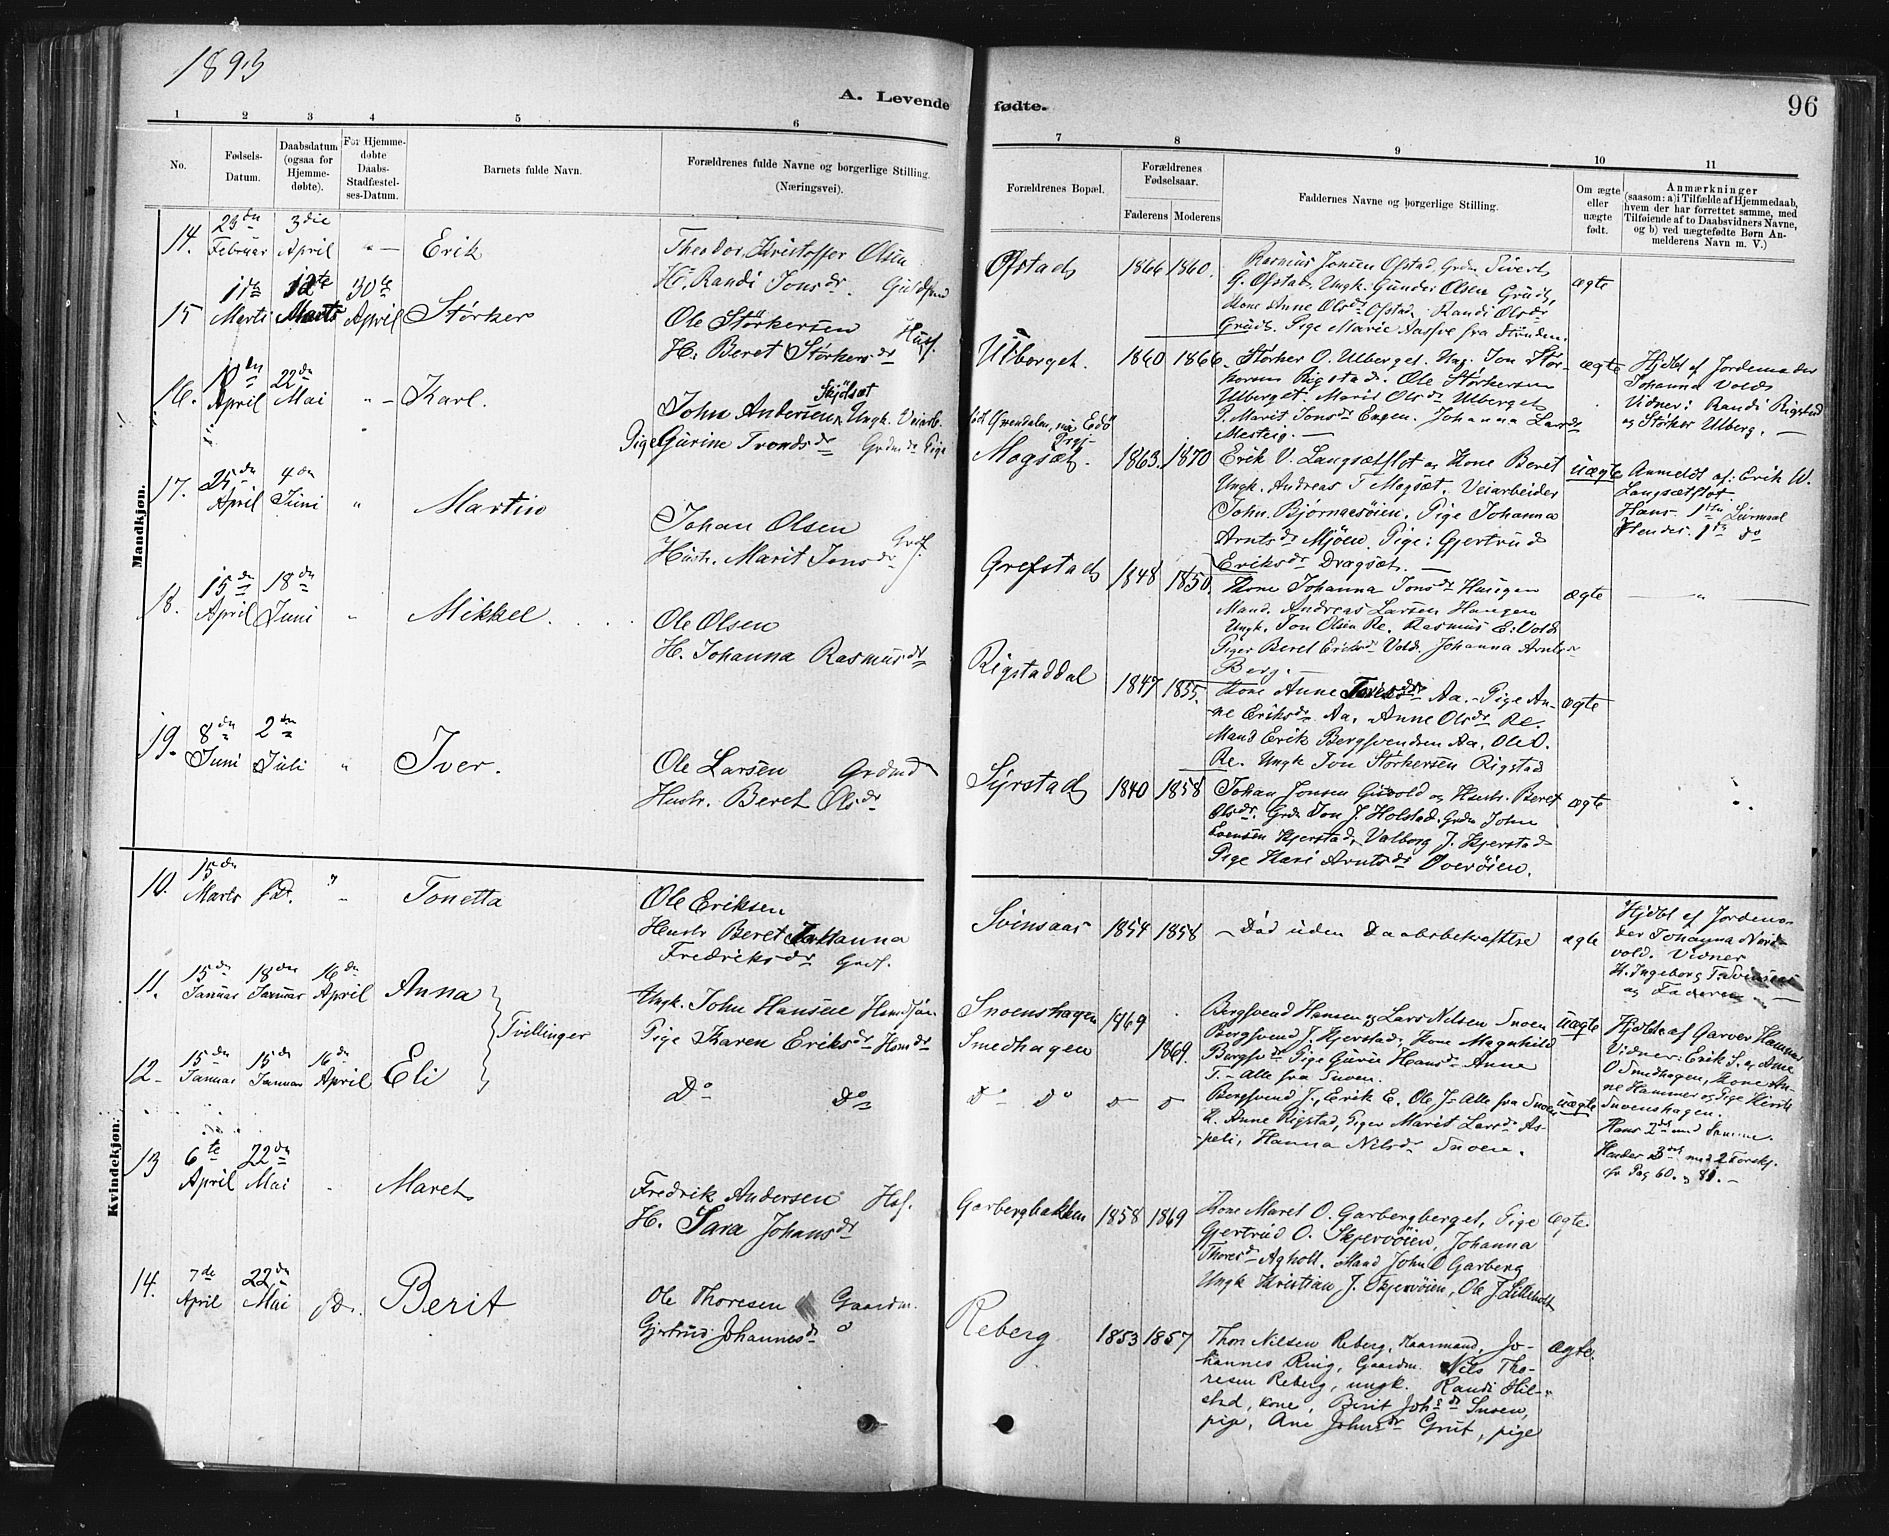 1893
A. Levende
fødte.
96
1 2 3 4 5 6 7 8 9 10 11
No.
Fødsels-
Datum.
Daabsdatum
(ogsaa for
Hjemme-
døbte).
For Hjemme-
døbte
Daabs-
Stadfæstel-
ses-Datum.
Barnets fulde Navn.
Forældrenes fulde Navne og borgerlige Stilling.
(Næringsvei).
Forældrenes Bopæl.
Forældrenes
Fødselsaar.
Faderens Moderens
Faddernes Navne og borgerlige Stilling.
Om ægte
eller
uægte
født.
Anmærkninger
(saasom: a) i Tilfælde af Hjemmedaab,
hvem der har forrettet samme, med
Tilføiende af to Daabsvidners Navne,
og b) ved uægtefødte Børn An-
melderens Navn m. V.)
Mandkjøn.
14. 23de Februar 3die April " — Erik
Theodor Kristoffer Olsen
H. Randi Jonsdr.
Ofstad 1866 1860.
Rasmus Jonsen Ofstad, Grdm Sivert
G. Ofstad. Ungk. Gunder Olsen Grüd,
Kone Anne Olsdr Ofstad. Randi Olsdr
Grüd. Pige Marie Aasve fra Strinden.
ægte
15 11te Marts 12te Marts 30te April Størker
Ole Størkersen Husf.
H. Beret Størkersdr
Ulberget. 1860 1866.
Størker O. Ulberget. Ung. Jon Stør-
kersen Rigstad. Ole Størkersen
Ulberget. Marit Olsdr Ulberget
P. Marit Jonsdr Engen. Johanna Larsdr
Mesteig. —
ægte
Hjdbt af Jordemoder
Johanna Volds
Vidner: Randi Rigstad
og Størker Ulberg. —
16. April 22de Mai " — Karl.
John Andersen Skjölsæt Ungk. Veiarb.
Pige Gurine Trondsdr Grdmds Pige
Mogsæt. 1863. 1870
Erik V. Langsætflot og Kone Beret
Ungk. Andreas T Mogsæt. Veiarbeider
John. Bjørnaasøien, Pige Johanna
Arntsdr Mjöen. Pige: Gjertrud
Eriksdr Dragsæt. —
uægte
Anmeldt af: Erik W.
Langsætflot.
Hans. 1ste Leirmaal
Hendes. 1ste do
17. 25de April 4de Juni " Martin
Johan Olsen Grdf.
Hustr. Marit Jonsdr
Grefstad 1848 1850.
Kone Johanna Jonsdr Haugen
Mand. Andreas Larsen Haugen
Ungk. Jon Olsen Re. Rasmus E. Vold
Piger Beret Eriksdr Vold. Johanna Arntsdr
Berg. —
ægte — " —
18. 15de April 18de Juni " Mikkel
Ole Olsen
H. Johanna Rasmusdr
Rigstaddal 1847 1855.
Kone Anne Aa. — Pige An-
ne Eriksdr Aa, Anne Olsdr Re.
Mand Erik Bergsvendsen Aa, Ole O.
Re. Ungk Jon Størkersen Rigstad
ægte
19. 8de Juni 2de Juli " Iver.
Ole Larsen Grdmd
Hustr. Beret Olsdr
Syrstad 1840 1858
Johan Jonsen Gisvold og Hustr. Beret
Olsdr. Grdm Jon J. Holstad. Grdm John
Svensen Kjerstad, Valborg J. Kjerstad
Pige Kari Arntsdr Overøien.
ægte
Kvindekjøn.
10. 15de Marts s.D. " Tonetta
Ole Eriksen
Hustr Beret Johanna
Fredriksdr Grdf.
Svinsaas 1854 1858
— Död uden Daabsbekræftelse
ægte
Hjdbt af Jordemo-
der Johanna Nord-
vold. Vidner
H. Ingeborg T. Svinsaas
og Faderen —
11. 15de Januar 18de Januar 16de April Anna
Tvillinger
Ungk. John Hansen
Pige Karen Eriksdr
Snoenshagen 1869
Smedhagen 1869.
Bergsvend Hansen og Lars Nilsen Snoen
Bergsvend J. Kjerstad, Kone Magnhild
Bergsdr Pige Guru Hansdr Anne
T. — Alle fra Snoen.
uægte
Hjdbte af Garver Hammer
Vidner: Erik S. og Anne
O Smedhagen, Kone An-
ne Hammer og Pige
Snoenshagen.
12. 15de Januar 15de Januar 16de April Eli
Do Do
Do Do
Bergsvend J., Eerik E. Ole J. Alle fra Snoen
K. Anne Rigstad, Piger Marit Larsdr As-
peli, Hanna Nilsdr Snoen.
uægte
Hans 2det med Samme.
Hendes 3die med 2 Forskj.
cfr Pag 60. og 81. —
13 6te April 22de Mai Maret
Fredrik Andersen Hsf.
H. Sara Johansdr
Garbergbakken 1858 1869
Kone Maret O. Garbergberget, Pige
Gjertrud O. Skjervöien, Johanna
Thoresdr Agholt. Mand John O Garberg
Ungk Kristian J. Skjervöien, Ole J. Lilleholt
ægte
14. 7de April 22de Mai do. Berit
Ole Thoresen Gaardm.
Gjertrud Johannesdr
Reberg 1853 1857
Thor Nilsen Reberg, Kaarmand, Jo-
hannes Ring, Gaardm. Nils Tho-
resen Reberg, ungk. Randi Hil-
stad, kone, Berit Johsdr Snoen,
pige, Ane Johnsdr Grut, pige
ægte.